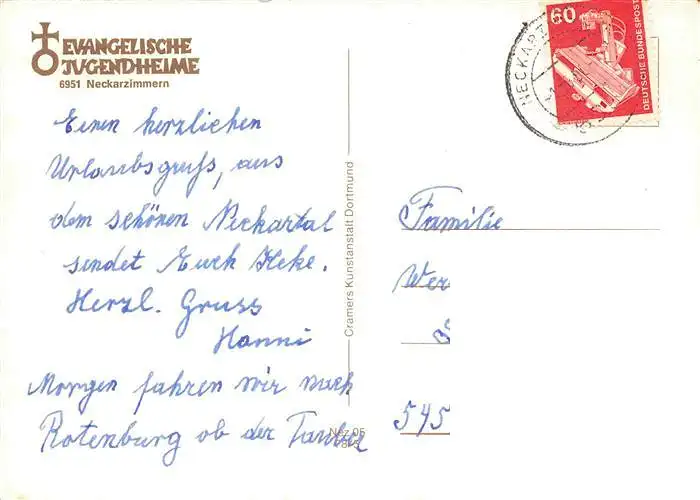 EVANGELISCHE
JUGENDHEIME
6951 Neckarzimmern
Einen herzlichen
Urlaubsgruß, aus
dem schönen Neckartal
sendet Euch Heke.
Herzl. Gruss
Hanni
Morgen fahren wir nach
Rotenburg ob der Tauber
Cramers Kunstanstalt Dortmund
60
DEUTSCHE BUNDESPOST
Familie
Wer
545